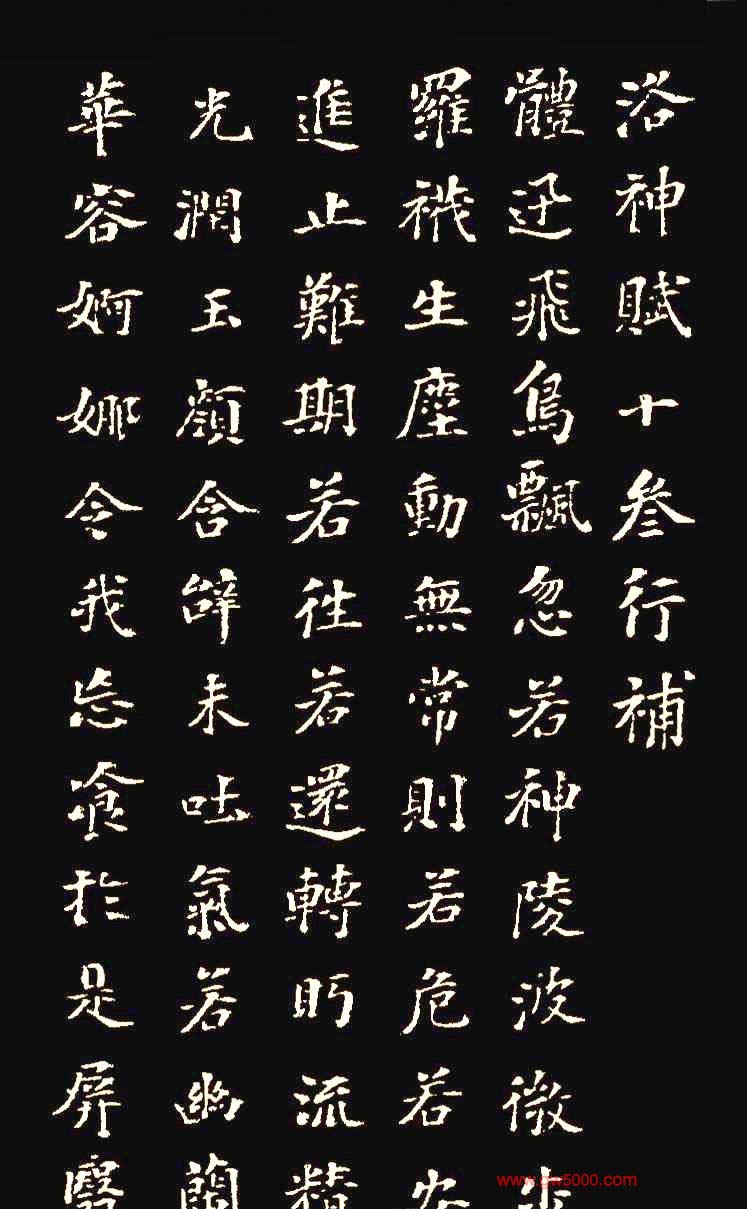 洛神賦十叁行補
體迅飛鳥飄忽若神陵波微步
羅襪生塵動無常則若危若安
進止難期若往若還轉眄流精
光潤玉顏含辭未吐氣若幽蘭
華容婀娜令我忘飡於是屏翳
www.gw5000.com